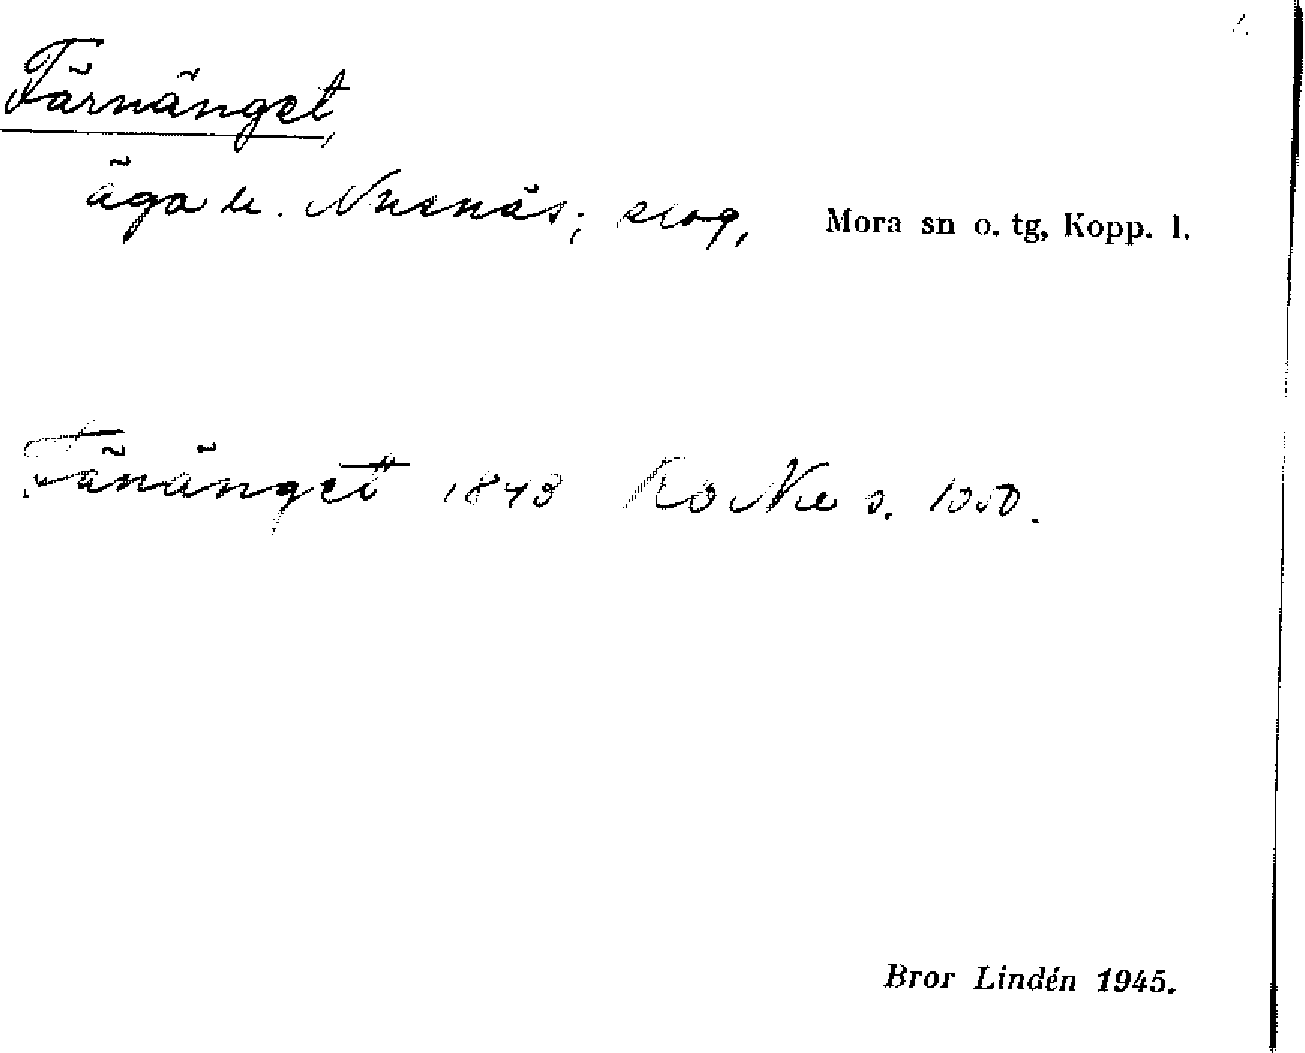 Tärnänget,
äga u. Nusnäs; skog, Mora sn o. tg, Kopp. l.
Tänänget 1843 Ko Nu s. 1050.
Bror Lindén 1945.